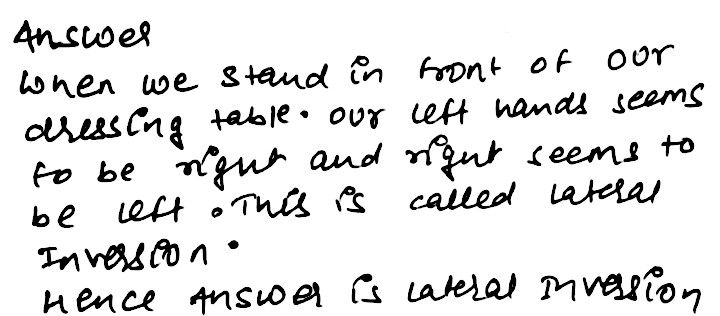 Answer
When we stand in front of our
dressing table. our left hands seems
to be right and right seems to
be left. This is called lateral
Inversion.
Hence Answer is lateral Inversion